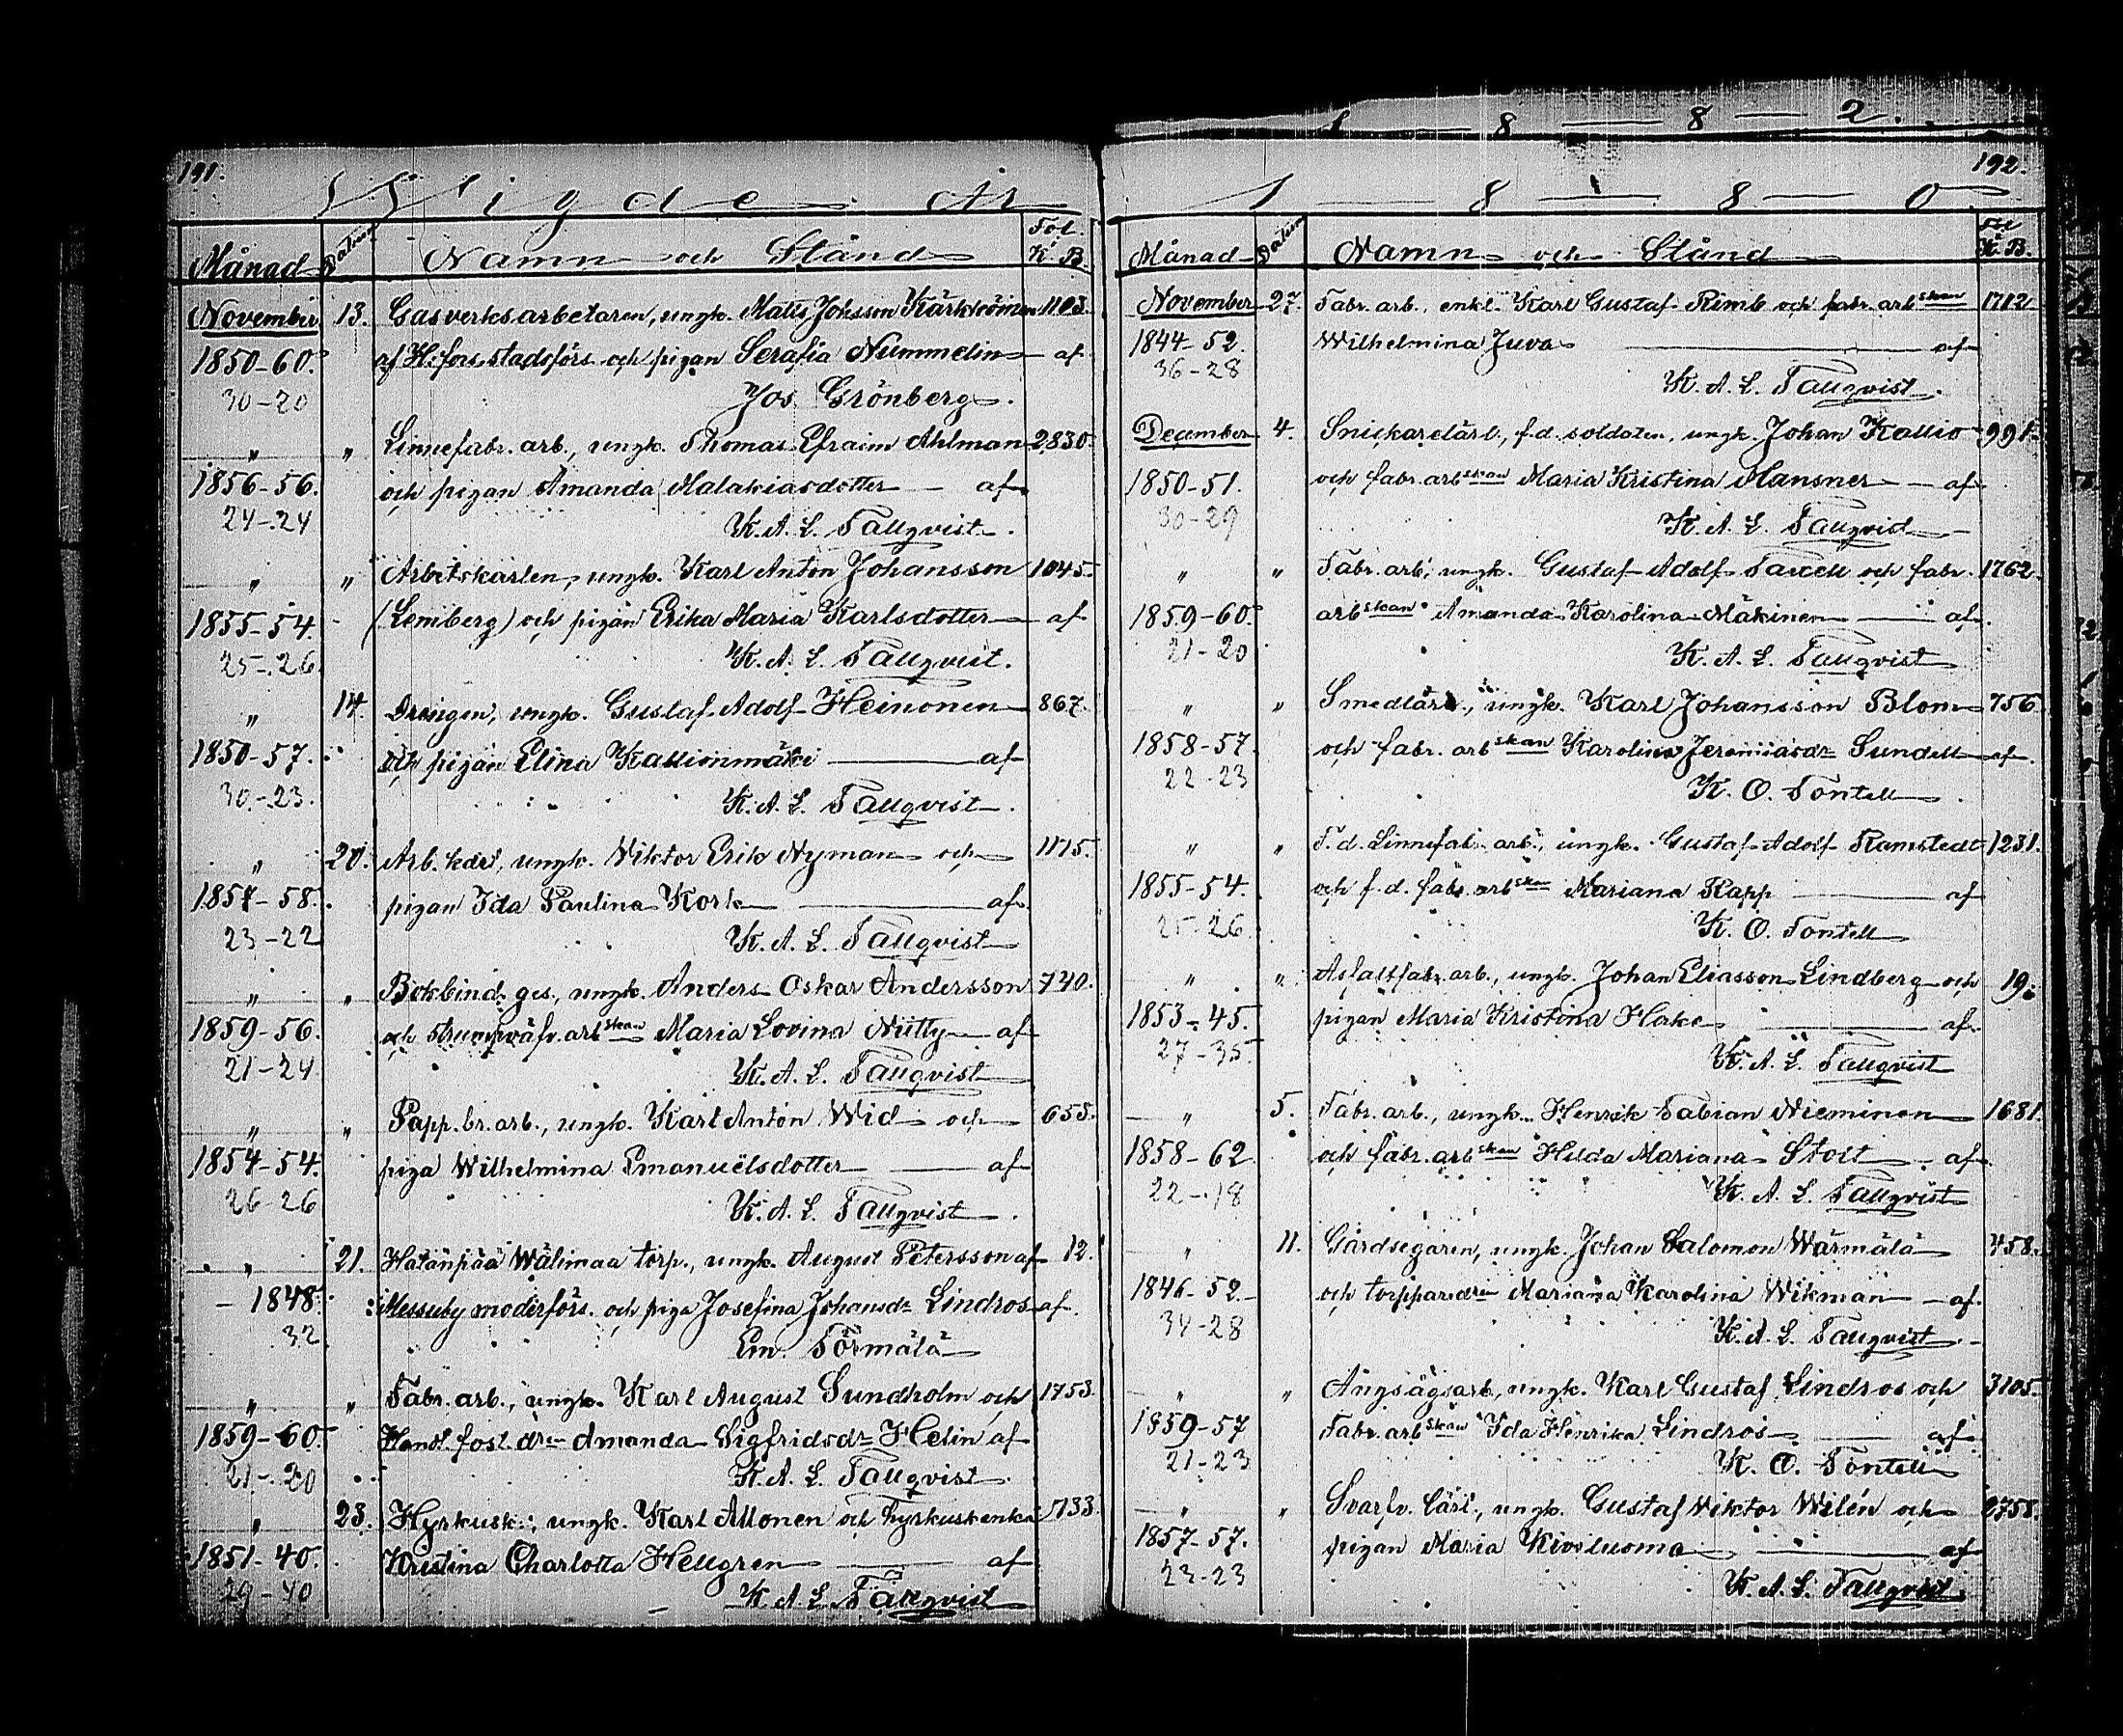 1 8 8 2.
191.
Wigde År
Månad Datum Namn och Stånd Fol. K. B.
November 13. Gasverksarbetaren, ungk. Matts Johsson 1103.
1850-60. af H:fors stadsförs. och pigan Serafia Nummelin af
30-20 Jos Grönberg.
" " Linnefabr. arb., ungk. Thomas Efraim Ahlman 2830.
1856-56. och pigan Amanda Malakiasdotter af
24-24 K. A. L. Tallqvist.
" " Arbetskarlen, ungk. Karl Anton Johansson 1045.
1855-54. (Lemberg) och pigan Erika Maria Karlsdotter af
25-26 K. A. L. Tallqvist.
" 14. Drängen, ungk. Gustaf Adolf Heinonen 867.
1850-57. och pigan Elina Kallionmäki af
30-23. K. A. L. Tallqvist.
" 20. Arb. karl, ungk. Wiktor Erik Nyman och 1175.
1857-58. pigan Ida Paulina Kork af
23-22 K. A. L. Tallqvist
" " Bokbind. ges., ungk. Anders Oskar Andersson 740.
1859-56. och strumpväfv. arbskan Maria Lovina Niitty af
21-24 K. A. L. Tallqvist
" " Papp. br. arb., ungk. Karl Anton Wid och 655.
1854-54. piga Wilhelmina Emanuelsdotter af
26-26 K. A. L. Tallqvist.
" 21. Hatanpää Wälimaa torp., ungk. August Petersson af 12.
- 1848. Messuby moderförs. och piga Josefina Johansdr Lindros af.
32 Em. Törmälä
" " Fabr. arb., ungk. Karl August Sundholm och 1753.
1859-60. Handl. fost. drn Amanda Sigfridsdr Helin af
21-20 K. A. L. Tallqvist
" 23. Hyrkusk., ungk. Karl Allonen och hyrkuskenka 733.
1851-40. Kristina Charlotta Hellgren af
29-40 K. A. L. Tallqvist
192.
1 8 8 0
Månad Datum Namn och Stånd Fol K. B.
November 27. Fabr. arb., enkl. Karl Gustaf Rimb och fabr. arbskan 1712
1844-52. Wilhelmina Juva af
36-28 K. A. L. Tallqvist.
December 4. Snickarelärl., f.d. soldaten, ungk. Johan Kallio 991.
1850-51. och fabr. arbskan Maria Kristina Mansner af
30-29 K. A. L. Tallqvist
" " Fabr. arb., ungk. Gustaf Adolf Tarcell och fabr. 1762.
1859-60. arbskan Amanda Karolina Mäkinen af.
21-20 K. A. L. Tallqvist
" " Smedlärl., ungk. Karl Johansson Blom 756
1858-57. och fabr. arbskan Karolina Jeremiasdr Sundell af.
22-23 K. O. Tontell
" " F. d. Linnefabr. arb., ungk. Gustaf Adolf Ramstedt 1231.
1855-54. och f. d. fabr. arbskan Mariana Rapp af
25-26 K. O. Tontell
" " Asfaltfabr. arb., ungk. Johan Eliasson Lindberg och 19.
1853-45. pigan Maria Kristina Hake af
27-35 K. A. L. Tallqvist
" 5. Fabr. arb., ungk. Henrik Fabian Nieminen 1681.
1858-62. och fabr. arbskan Hilda Mariana Stolt af
22-18 K. A. L. Tallqvist
" 11. Gårdsegaren, ungk. Johan Salomon Wärmälä 458.
1846-52. och torpparedrn Mariana Karolina Wikman af.
34-28 K. A. L. Tallqvist
" " Ångsågsarb., ungk. Karl Gustaf Lindros och 3105.
1859-57 Fabr. arbskan Ida Henrika Lindros af
21-23 K. O. Tontell
" " Svarfv. lärl., ungk. Gustaf Wiktor Wilén och 2758.
1857-57. pigan Maria Kiviluoma af
23-23 K. A. L. Tallqvist.